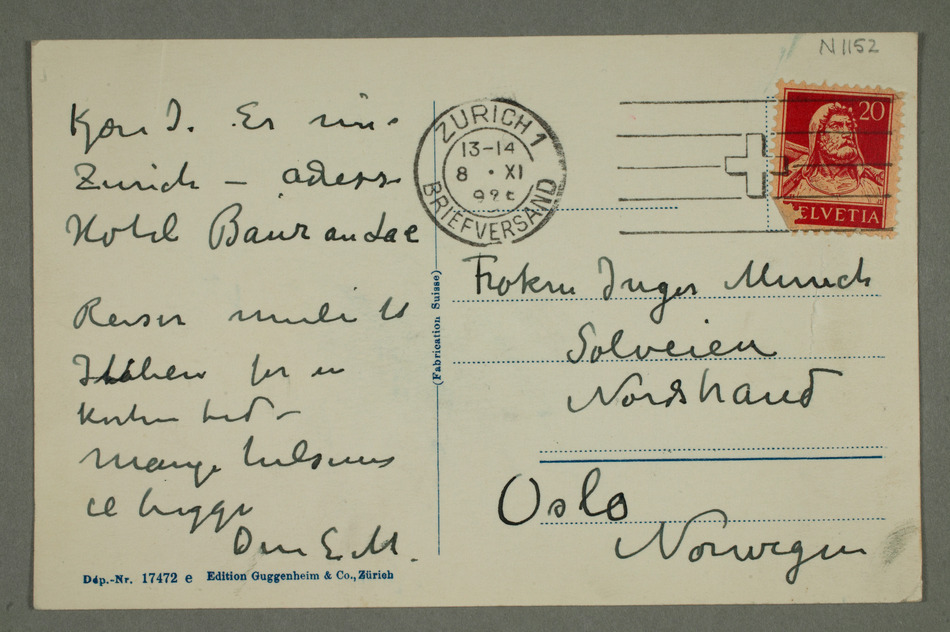 N1152
Kjære I. Er nu i
Zurich – adress
Hotel Baur au Lac
Reiser muli til
Italien for en
kort tid –
Mange hilsener
til begge
Din E.M.
ZÜRICH 1
13–14
8 · XI
BRIEFVERSAND
20
HELVETIA
(Fabrication Suisse)
Frøken Inger Munch
Solveien
Nordstrand
Oslo
Norwegen
Dép.-Nr. 17472 e Edition Guggenheim & Co., Zürich